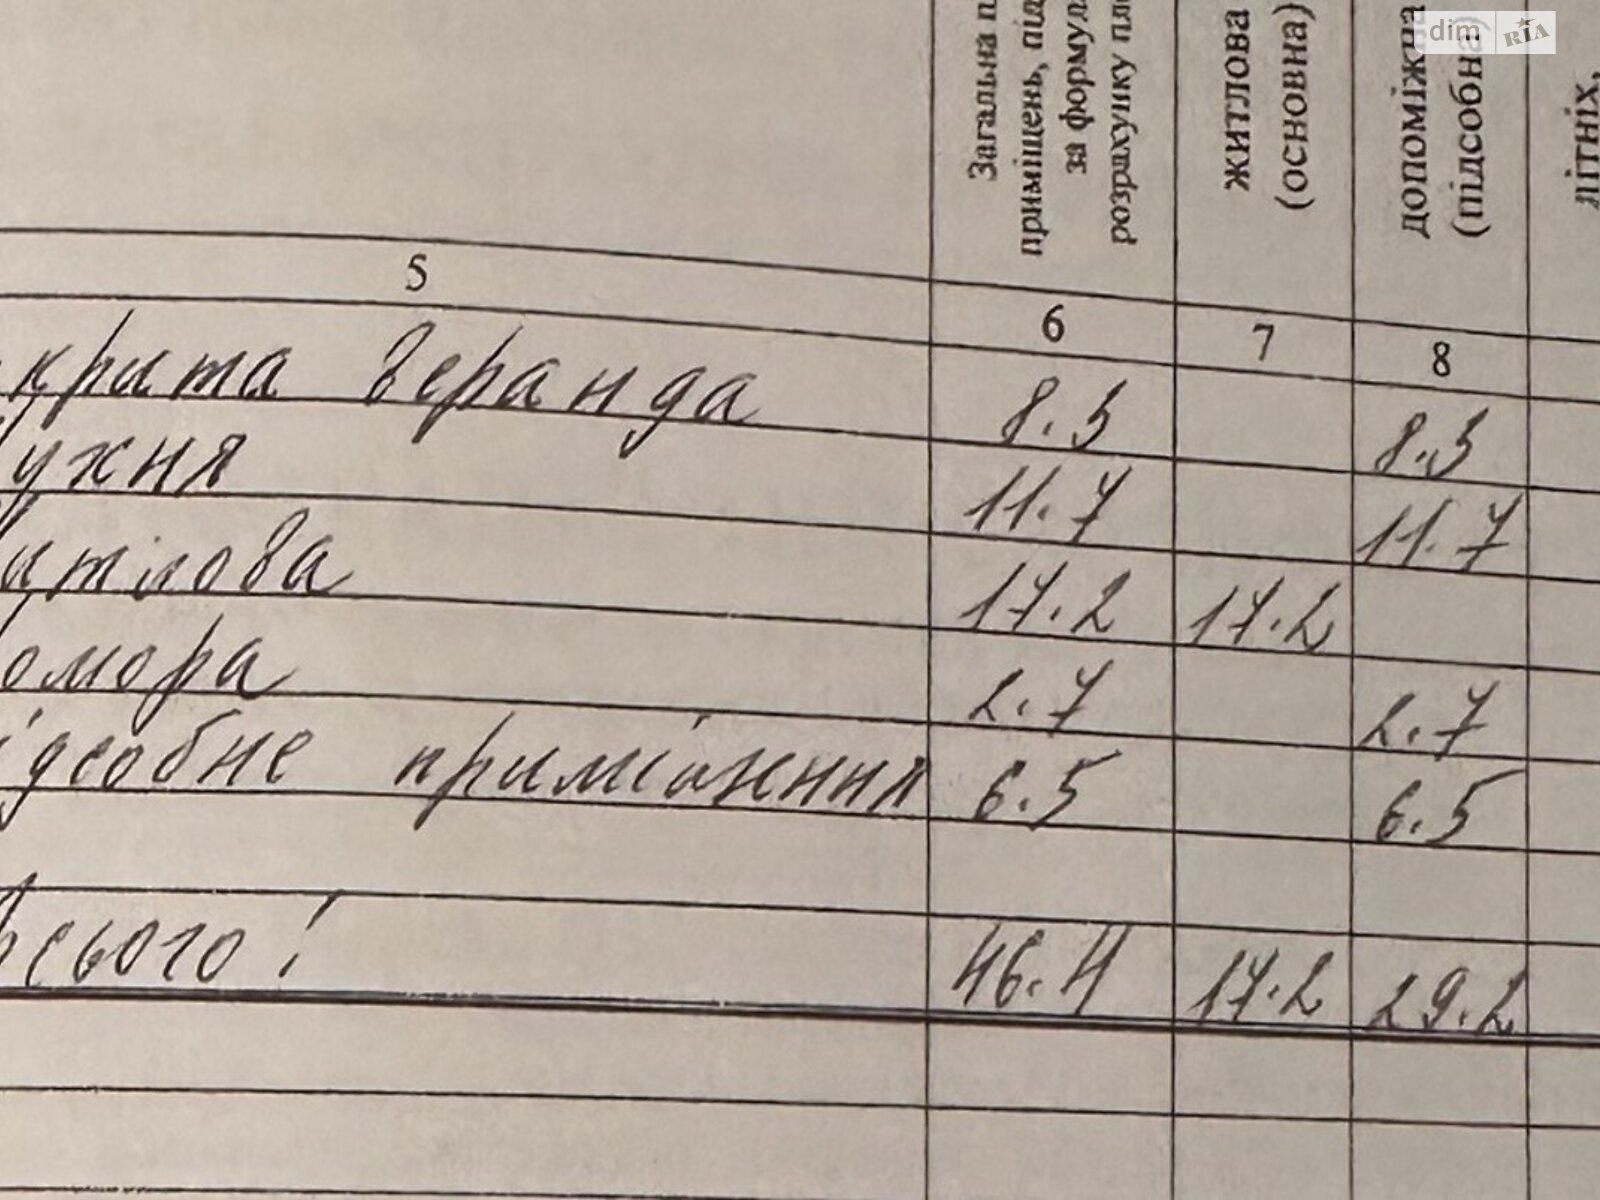 dim RIA
Загальна п
приміщень, під
за формул
розрахунку пло
житлова
(основна)
допоміжна
(підсобна)
літніх,
5 6 7 8
крита веранда 8.3 8.3
ухня 11.7 11.7
итлова 17.2 17.2
омора 2.7 2.7
ідсобне приміщення 6.5 6.5
Всього: 46.4 17.2 29.2